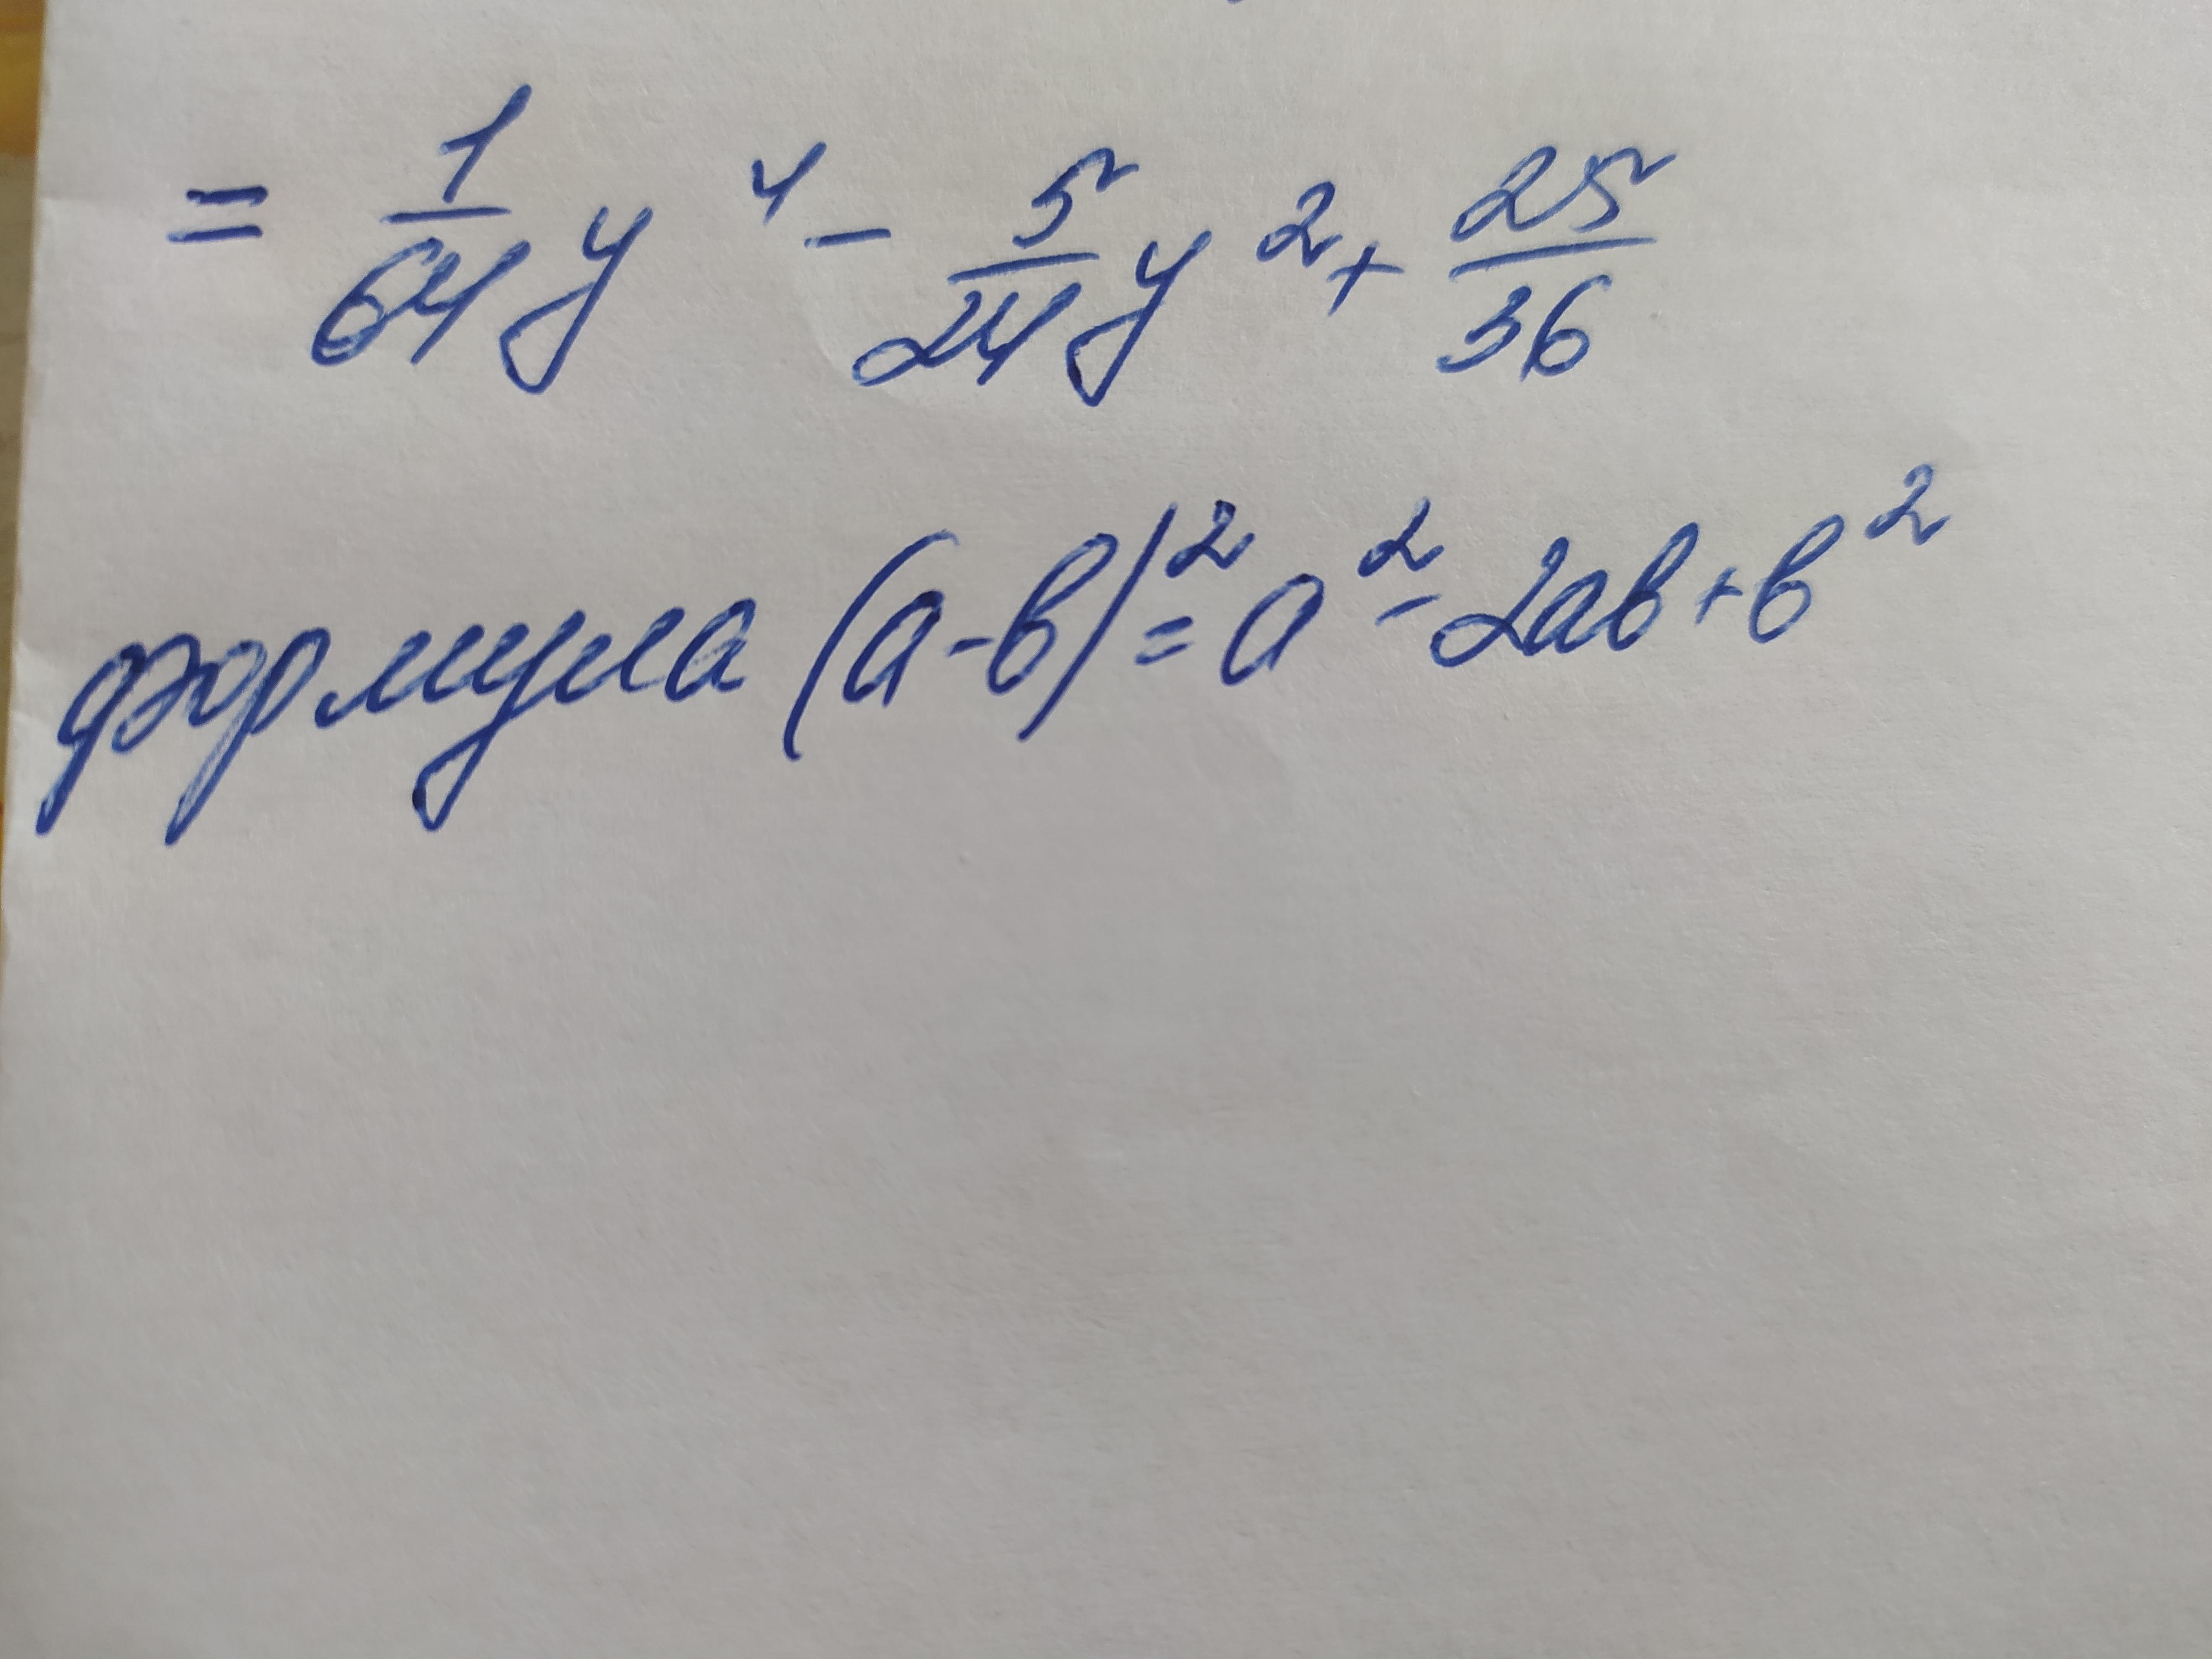 = 1/64 y⁴ - 5/24 y² + 25/36
формула (a-b)² = a² - 2ab + b²